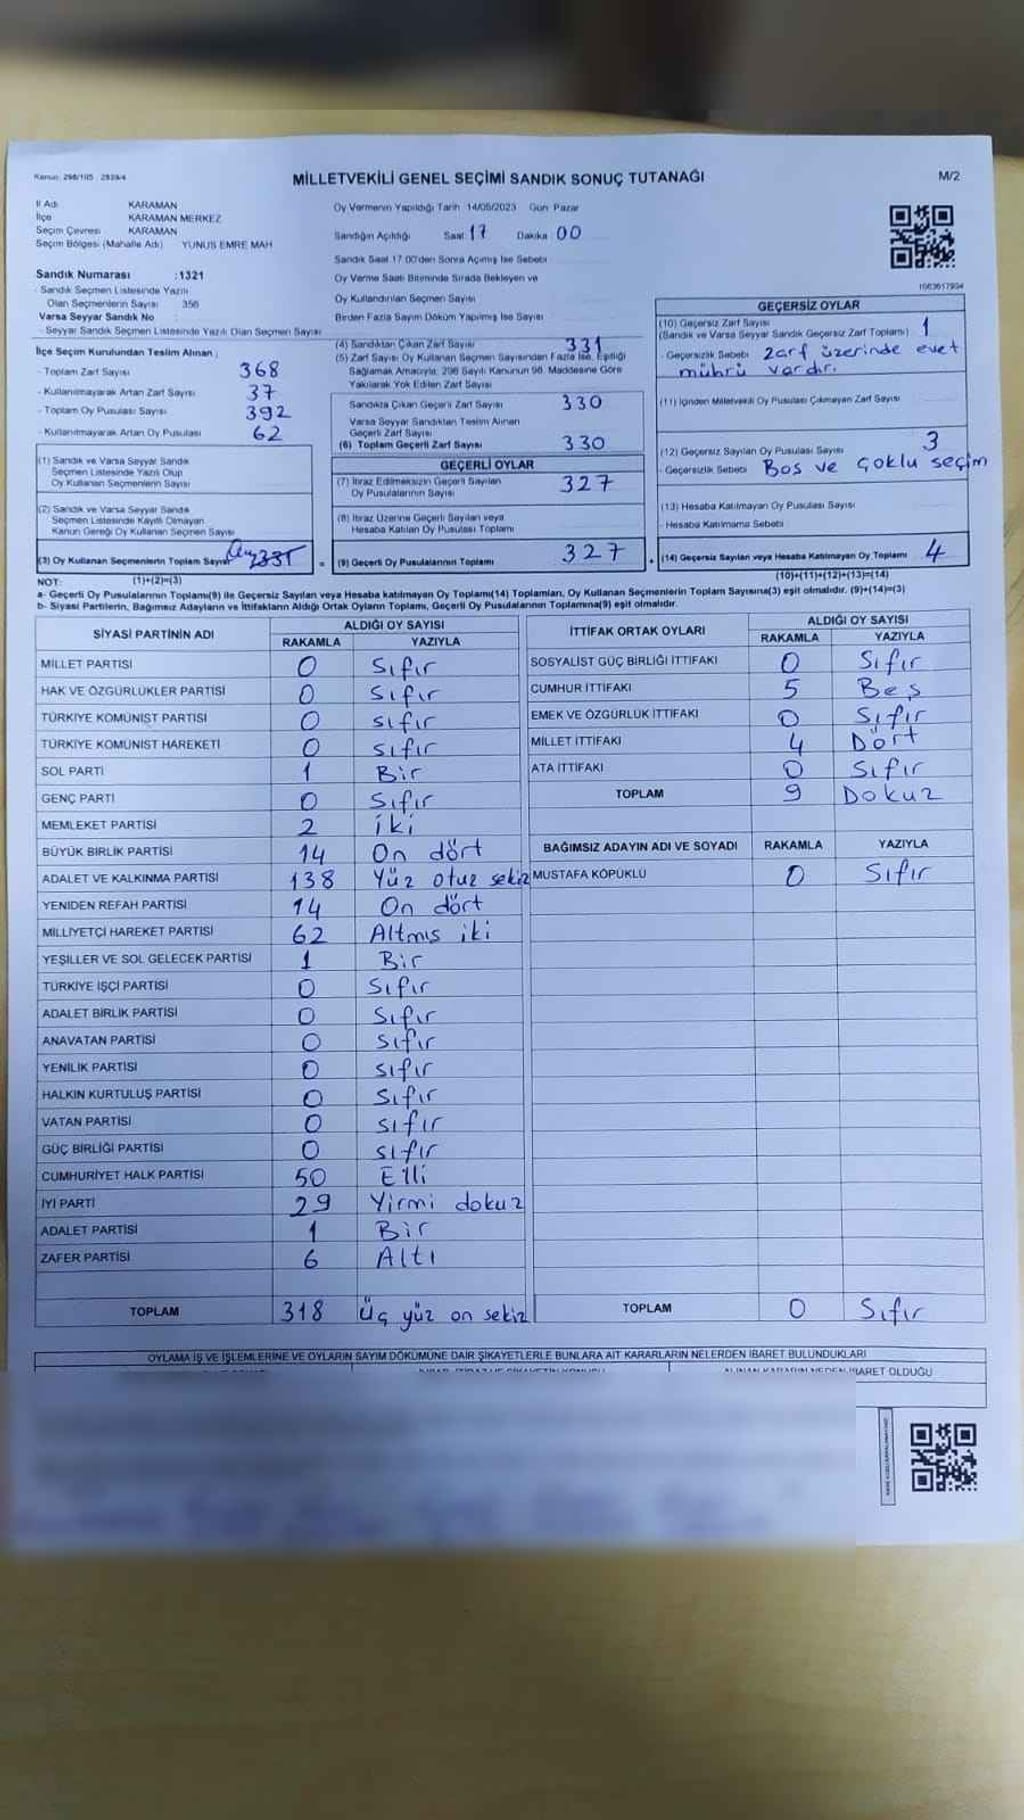 MİLLETVEKİLİ GENEL SEÇİMİ SANDIK SONUÇ TUTANAĞI
M/2
İl Adı KARAMAN
İlçe KARAMAN MERKEZ
Seçim Çevresi KARAMAN
Seçim Bölgesi (Mahalle Adı) YUNUS EMRE MAH
Sandık Numarası :1321
- Sandık Seçmen Listesinde Yazılı
Olan Seçmenlerin Sayısı 356
Varsa Seyyar Sandık No
- Seyyar Sandık Seçmen Listesinde Yazılı Olan Seçmen Sayısı
Oy Vermenin Yapıldığı Tarih 14/05/2023 Gün Pazar
Sandığın Açıldığı Saat 17 Dakika 00
Sandık Saat 17.00'den Sonra Açılmış İse Sebebi
Oy Verme Saati Bitiminde Sırada Bekleyen ve
Oy Kullandırılan Seçmen Sayısı
Birden Fazla Sayım Döküm Yapılmış İse Sayısı
İlçe Seçim Kurulundan Teslim Alınan ;
- Toplam Zarf Sayısı 368
- Kullanılmayarak Artan Zarf Sayısı 37
- Toplam Oy Pusulası Sayısı 392
- Kullanılmayarak Artan Oy Pusulası 62
(1) Sandık ve Varsa Seyyar Sandık
Seçmen Listesinde Yazılı Olup
Oy Kullanan Seçmenlerin Sayısı
(2) Sandık ve Varsa Seyyar Sandık
Seçmen Listesinde Kayıtlı Olmayan
Kanun Gereği Oy Kullanan Seçmen Sayısı
(3) Oy Kullanan Seçmenlerin Toplam Sayısı
(1)+(2)=(3)
(4) Sandıktan Çıkan Zarf Sayısı 331
(5) Zarf Sayısı Oy Kullanan Seçmen Sayısından Fazla İse, Eşitliği
Sağlamak Amacıyla, 298 Sayılı Kanunun 98. Maddesine Göre
Yakılarak Yok Edilen Zarf Sayısı
Sandıkta Çıkan Geçerli Zarf Sayısı 330
Varsa Seyyar Sandıktan Teslim Alınan
Geçerli Zarf Sayısı
(6) Toplam Geçerli Zarf Sayısı 330
GEÇERLİ OYLAR
(7) İtiraz Edilmeksizin Geçerli Sayılan
Oy Pusulalarının Sayısı 327
(8) İtiraz Üzerine Geçerli Sayılan veya
Hesaba Katılan Oy Pusulası Toplamı
(9) Geçerli Oy Pusulalarının Toplamı 327
GEÇERSİZ OYLAR
(10) Geçersiz Zarf Sayısı
(Sandık ve Varsa Seyyar Sandık Geçersiz Zarf Toplamı) 1
- Geçersizlik Sebebi Zarf üzerinde evet
mührü vardır.
(11) İçinden Milletvekili Oy Pusulası Çıkmayan Zarf Sayısı
(12) Geçersiz Sayılan Oy Pusulası Sayısı 3
- Geçersizlik Sebebi Boş ve çoklu seçim
(13) Hesaba Katılmayan Oy Pusulası Sayısı
- Hesaba Katılmama Sebebi
(14) Geçersiz Sayılan veya Hesaba Katılmayan Oy Toplamı 4
(10)+(11)+(12)+(13)=(14)
NOT:
a- Geçerli Oy Pusulalarının Toplamı(9) ile Geçersiz Sayılan veya Hesaba katılmayan Oy Toplamı(14) Toplamları, Oy Kullanan Seçmenlerin Toplam Sayısına(3) eşit olmalıdır. (9)+(14)=(3)
b- Siyasi Partilerin, Bağımsız Adayların ve İttifakların Aldığı Ortak Oyların Toplamı, Geçerli Oy Pusulalarının Toplamına(9) eşit olmalıdır.
SİYASİ PARTİNİN ADI ALDIĞI OY SAYISI
RAKAMLA YAZIYLA
MİLLET PARTİSİ 0 Sıfır
HAK VE ÖZGÜRLÜKLER PARTİSİ 0 Sıfır
TÜRKİYE KOMÜNİST PARTİSİ 0 sıfır
TÜRKİYE KOMÜNİST HAREKETİ 0 sıfır
SOL PARTİ 1 Bir
GENÇ PARTİ 0 Sıfır
MEMLEKET PARTİSİ 2 iki
BÜYÜK BİRLİK PARTİSİ 14 On dört
ADALET VE KALKINMA PARTİSİ 138 Yüz otuz sekiz
YENİDEN REFAH PARTİSİ 14 On dört
MİLLİYETÇİ HAREKET PARTİSİ 62 Altmış iki
YEŞİLLER VE SOL GELECEK PARTİSİ 1 Bir
TÜRKİYE İŞÇİ PARTİSİ 0 Sıfır
ADALET BİRLİK PARTİSİ 0 Sıfır
ANAVATAN PARTİSİ 0 sıfır
YENİLİK PARTİSİ 0 sıfır
HALKIN KURTULUŞ PARTİSİ 0 Sıfır
VATAN PARTİSİ 0 sıfır
GÜÇ BİRLİĞİ PARTİSİ 0 sıfır
CUMHURİYET HALK PARTİSİ 50 Elli
İYİ PARTİ 29 Yirmi dokuz
ADALET PARTİSİ 1 Bir
ZAFER PARTİSİ 6 Altı
TOPLAM 318 Üç yüz on sekiz
İTTİFAK ORTAK OYLARI ALDIĞI OY SAYISI
RAKAMLA YAZIYLA
SOSYALİST GÜÇ BİRLİĞİ İTTİFAKI 0 Sıfır
CUMHUR İTTİFAKI 5 Beş
EMEK VE ÖZGÜRLÜK İTTİFAKI 0 Sıfır
MİLLET İTTİFAKI 4 Dört
ATA İTTİFAKI 0 Sıfır
TOPLAM 9 Dokuz
BAĞIMSIZ ADAYIN ADI VE SOYADI RAKAMLA YAZIYLA
MUSTAFA KÖPÜKLÜ 0 Sıfır
TOPLAM 0 Sıfır
OYLAMA İŞ VE İŞLEMLERİNE VE OYLARIN SAYIM DÖKÜMÜNE DAİR ŞİKAYETLERLE BUNLARA AİT KARARLARIN NELERDEN İBARET BULUNDUKLARI